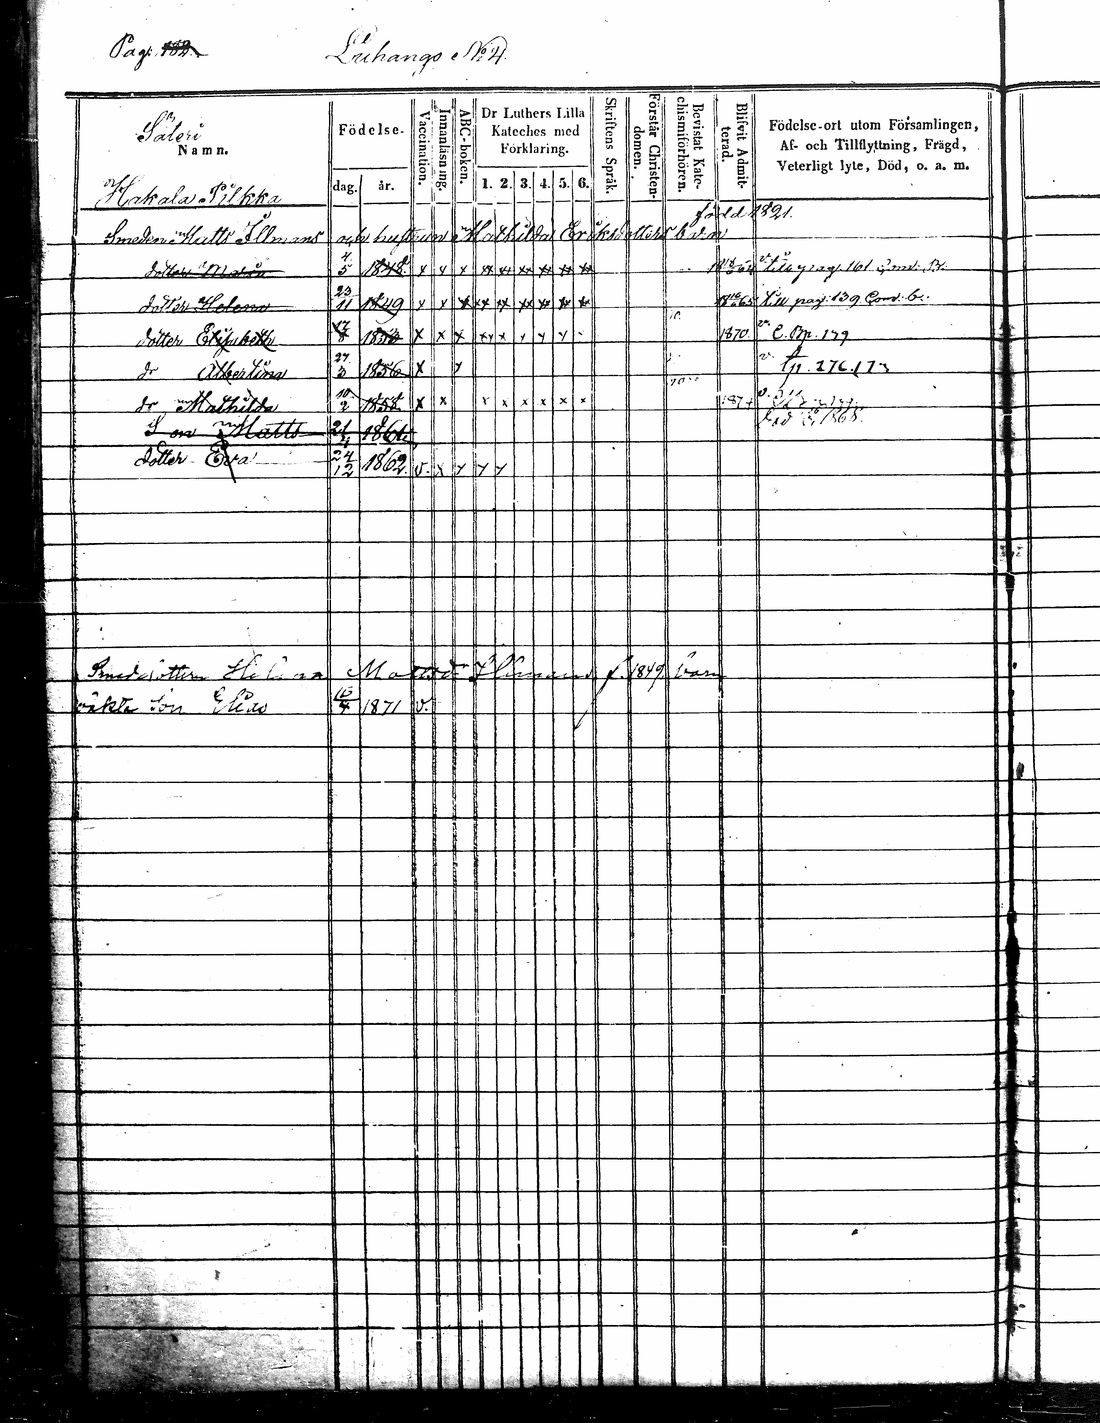 Pag. 182.
Luhangs No 4.
Säteri
Namn.
Födelse-
dag. år.
Vaccination.
Innanläsning.
ABC-boken.
Dr Luthers Lilla
Kateches med
Förklaring.
1. 2. 3. 4. 5. 6.
Skriftens Språk.
Förstår Christen-
domen.
Bevistat Kate-
chismiförhören.
Blifvit Admit-
terad.
Födelse-ort utom Församlingen,
Af- och Tillflyttning, Frägd,
Veterligt lyte, Död, o. a. m.
Hakala Pilkka
född 1821.
Smeden Matts Illmans och hustrun Mathilda Eriksdotters barn
dotter Maria 4/5 1848. x x x xx xx xx xx xx xx pag. 161
dotter Helena 23/11 1849 x x x xx xx xx xx xx xx till pag. 139
dotter Elisabeth 17/8 x x x xx x x x x 1870. 179
dr Albertina 27/3 1856 x x p. 176.
dr Mathilda 10/2 x x x x x x x x
Son Matts 21/4 1861 1868.
dotter Eva 24/12 1862. v. x x x x
Smedsdottern Helena Mattsdr Illmans f. 1849 barn
oäkta son Elias 1871 v.